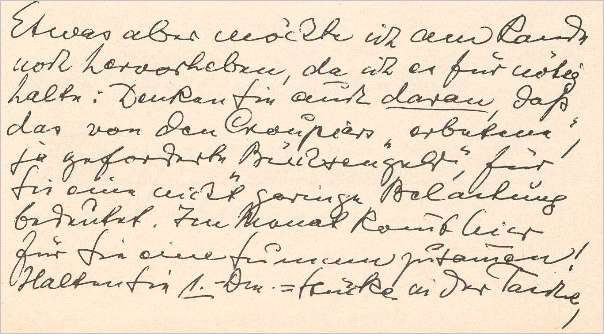 Etwas aber möchte ich am Rande
noch hervorheben, da ich es für nötig
halte: Denken Sie auch daran, daß
das von den Croupiers „erbetene“,
ja „geforderte Büchsengeld“, für
Sie eine nicht geringe Belastung
bedeutet. Im Monat kom̅t hier
für Sie eine Summe zusam̅en!
Halten Sie 1.-Dm.=Stücke in der Tasche,